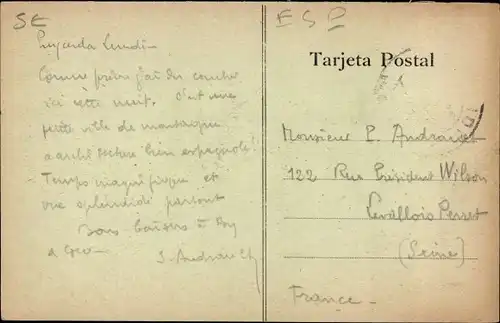 SE
ESP
Puigcerda Lundi -
Comme prévu j'ai dû coucher
ici cette nuit. C'est une
petite ville de montagne
architecture bien espagnole!
Temps magnifique et
vue splendide partout
Bons baisers à
a Geo
J. Andrau
Tarjeta Postal
Monsieur P.
122 Rue Président Wilson
Levallois Perret
(Seine)
France -